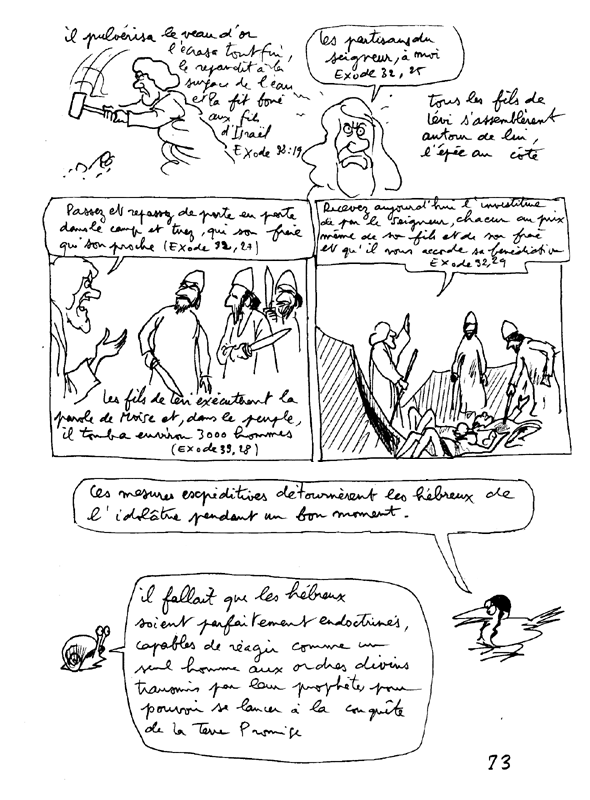 il pulvérisa le veau d'or
l'écrasa tout fin,
le répandit à la
surface de l'eau
et la fit boire
aux fils
d'Israël
Exode 32:19
les partisans du
seigneur, à moi
Exode 32, 25
tous les fils de
Lévi s'assemblèrent
autour de lui,
l'épée au côté
Passez et repassez de porte en porte
dans le camp et tuez, qui son frère
qui son proche (Exode 32, 27)
Recevez aujourd'hui l'investiture
de par le Seigneur, chacun au prix
même de son fils et de son frère
et qu'il vous accorde sa bénédiction
Exode 32, 29
les fils de Lévi exécutèrent la
parole de Moïse et, dans le peuple,
il tomba environ 3000 hommes
(Exode 39, 28)
Ces mesures escpéditives détournèrent les hébreux de
l'idolâtrie pendant un bon moment.
il fallait que les hébreux
soient parfaitement endoctrinés,
capables de réagir comme un
seul homme aux ordres divins
transmis par leur prophète, pour
pouvoir se lancer à la conquête
de la Terre Promise
73